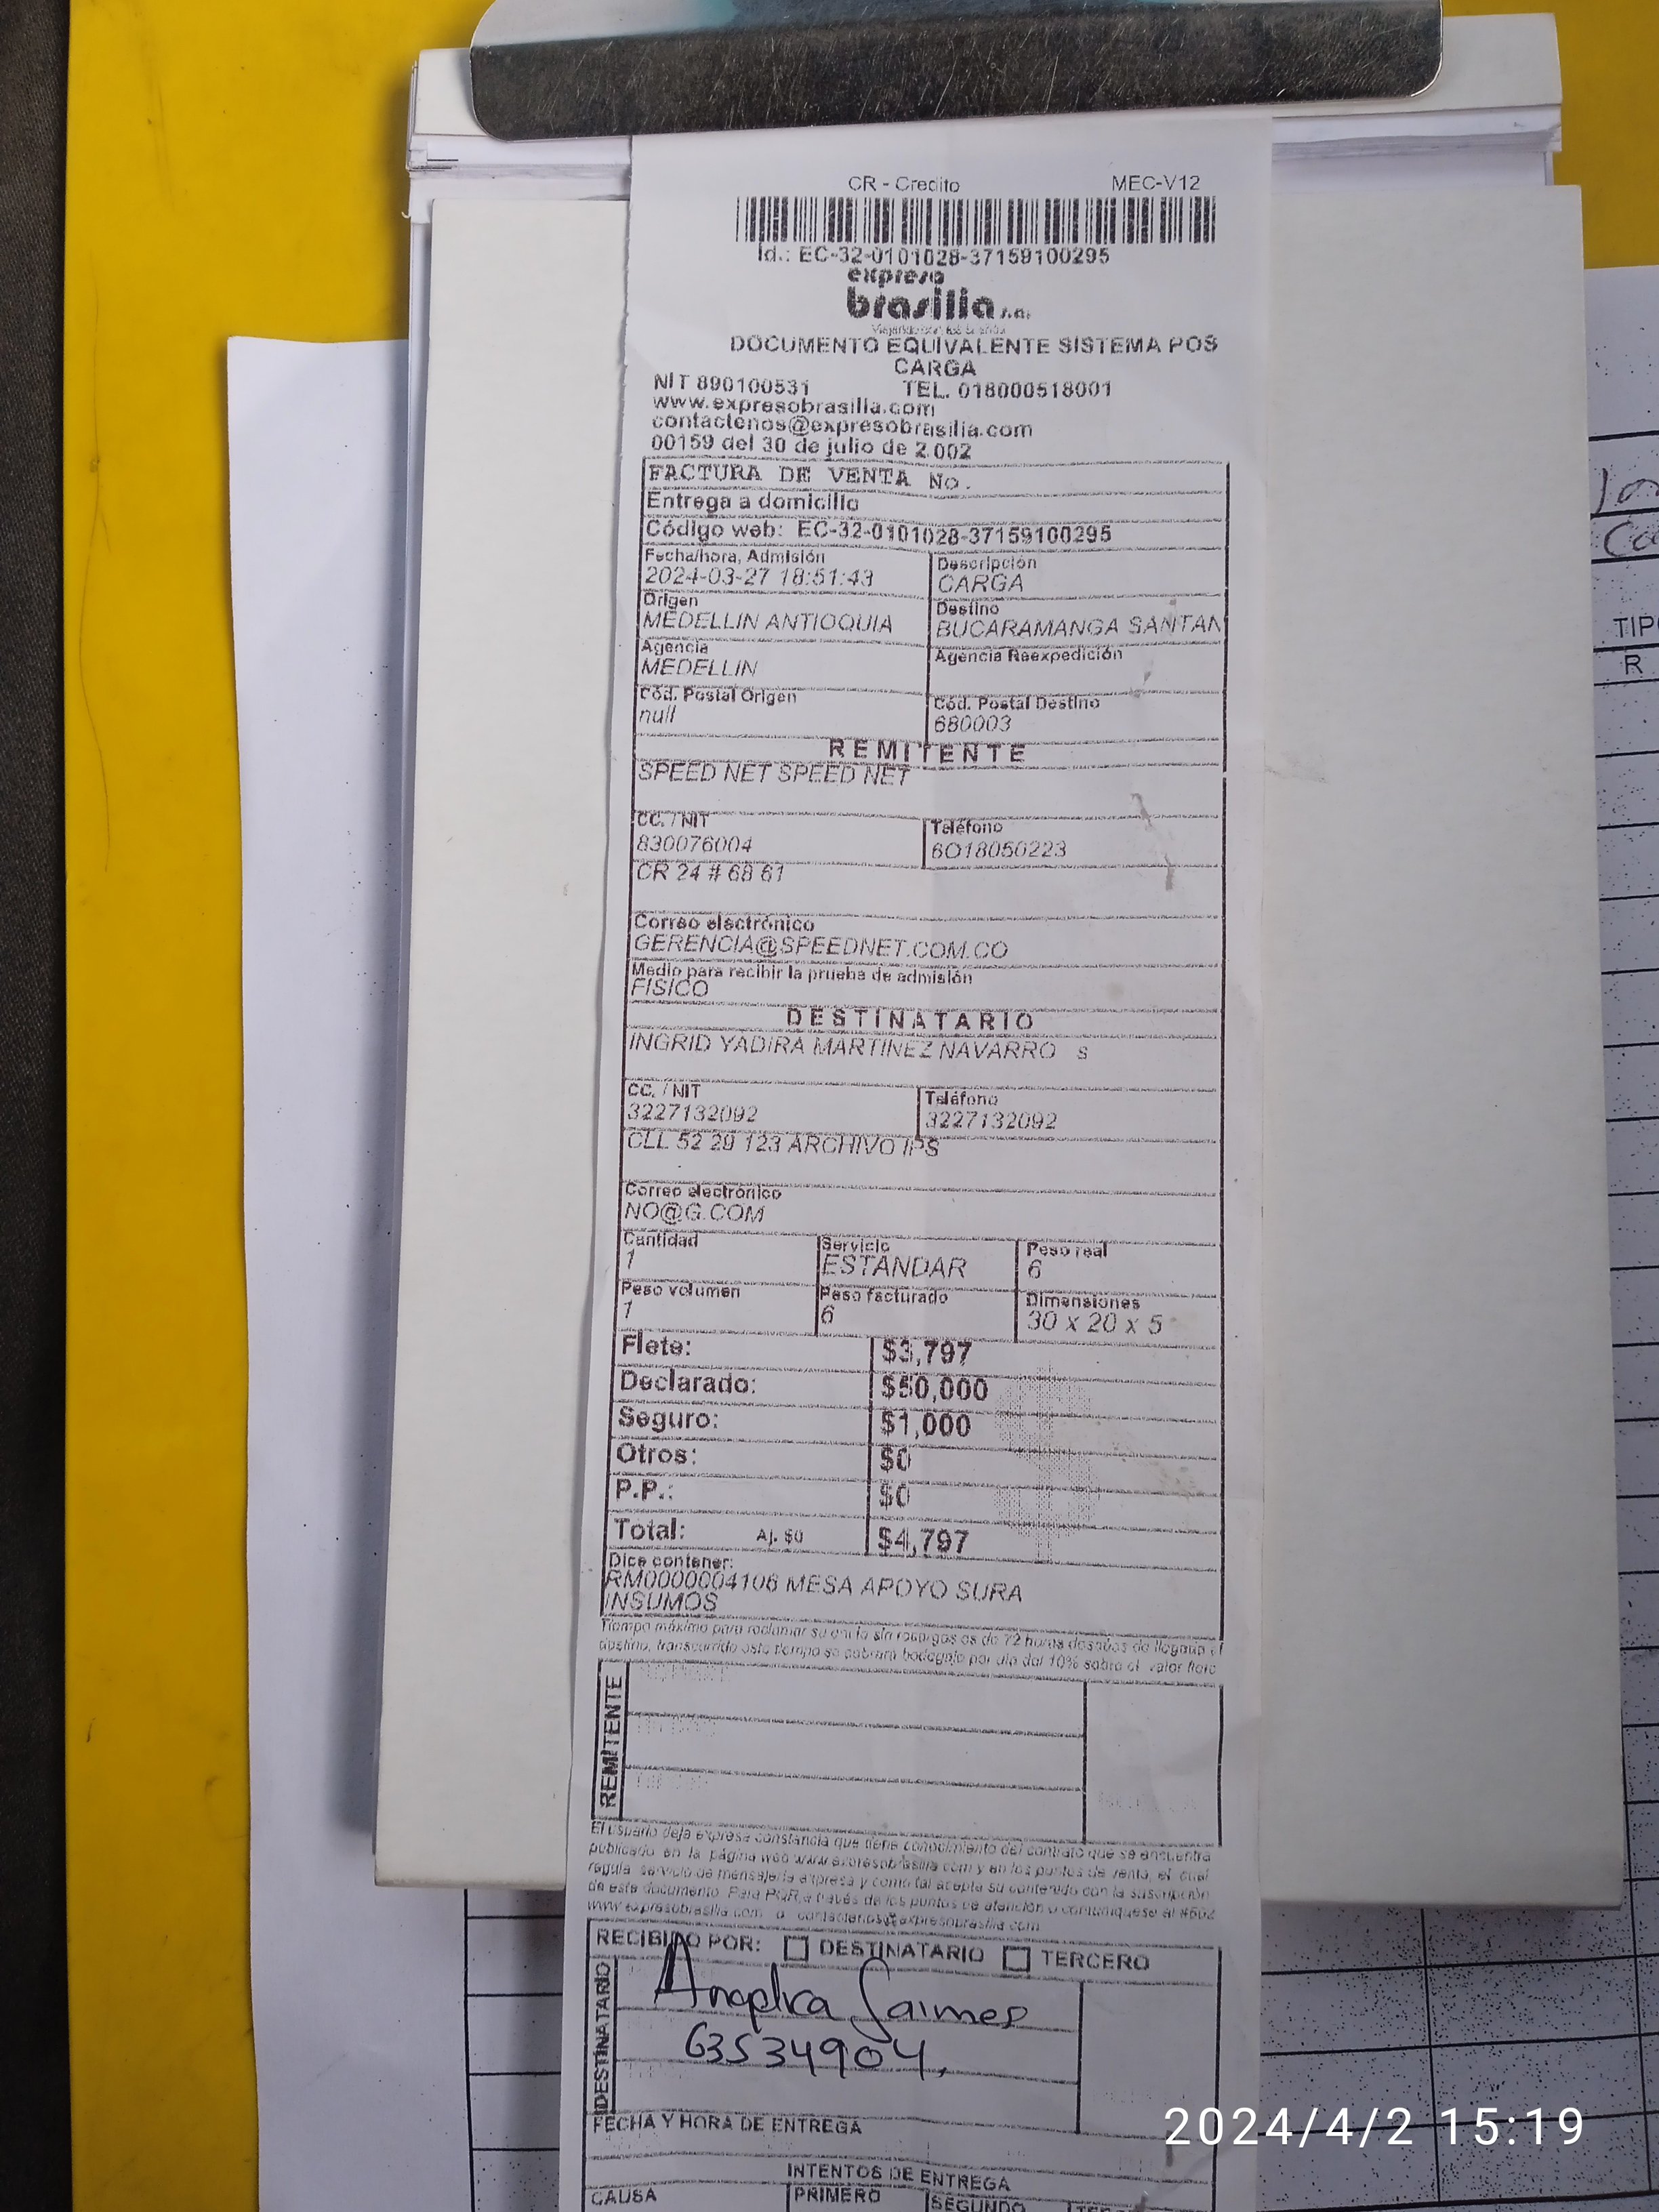 CR - Credito MEC-V12
Id.: EC-32-0101028-37159100295
expreso
brasilia s.a.
DOCUMENTO EQUIVALENTE SISTEMA POS
CARGA
NIT 890100531 TEL. 018000518001
www.expresobrasilia.com
contactenos@expresobrasilia.com
00159 del 30 de julio de 2.002
FACTURA DE VENTA No.
Entrega a domicilio
Código web: EC-32-0101028-37159100295
Fecha/hora, Admisión Descripción
2024-03-27 18:51:43 CARGA
Origen Destino
MEDELLIN ANTIOQUIA BUCARAMANGA SANTAN
Agencia Agencia Reexpedición
MEDELLIN
Cód. Postal Origen Cód. Postal Destino
null 680003
REMITENTE
SPEED NET SPEED NET
CC. / NIT Teléfono
830076004 6O18050223
CR 24 # 68 61
Correo electrónico
GERENCIA@SPEEDNET.COM.CO
Medio para recibir la prueba de admisión
FISICO
DESTINATARIO
INGRID YADIRA MARTINEZ NAVARRO s
CC. / NIT Teléfono
3227132092 3227132092
CLL 52 29 123 ARCHIVO IPS
Correo electrónico
NO@G.COM
Cantidad Servicio Peso real
1 ESTANDAR 6
Peso volumen Peso facturado Dimensiones
1 6 30 x 20 x 5
Flete: $3,797
Declarado: $50,000
Seguro: $1,000
Otros: $0
P.P.: $0
Total: Aj. $0 $4,797
Dice contener:
RM0000004106 MESA APOYO SURA
INSUMOS
Tiempo máximo para reclamar su envío sin recargos es de 72 horas después de llegada al
destino, transcurrido este tiempo se cobrará bodegaje por día del 10% sobre el valor flete
REMITENTE
El usuario deja expresa constancia que tiene conocimiento del contrato que se encuentra
publicado en la página web www.expresobrasilia.com y en los puntos de venta, el cual
regula servicio de mensajería expresa y como tal acepta su contenido con la suscripción
de este documento. Para PQR, a través de los puntos de atención o comuníquese al #502
www.expresobrasilia.com o contactenos@expresobrasilia.com
RECIBIDO POR: DESTINATARIO TERCERO
DESTINATARIO
Angelica Jaimes
63534904
FECHA Y HORA DE ENTREGA
INTENTOS DE ENTREGA
CAUSA PRIMERO SEGUNDO
TIP
R
2024/4/2 15:19